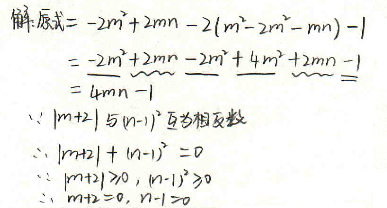 解:原式= -2m²+2mn-2(m²-2m²-mn)-1
= -2m²+2mn-2m²+4m²+2mn-1
= 4mn-1
∵ |m+2|与(n-1)²互为相反数
∴ |m+2|+(n-1)²=0
∵ |m+2|≥0,(n-1)²≥0
∴ m+2=0, n-1=0